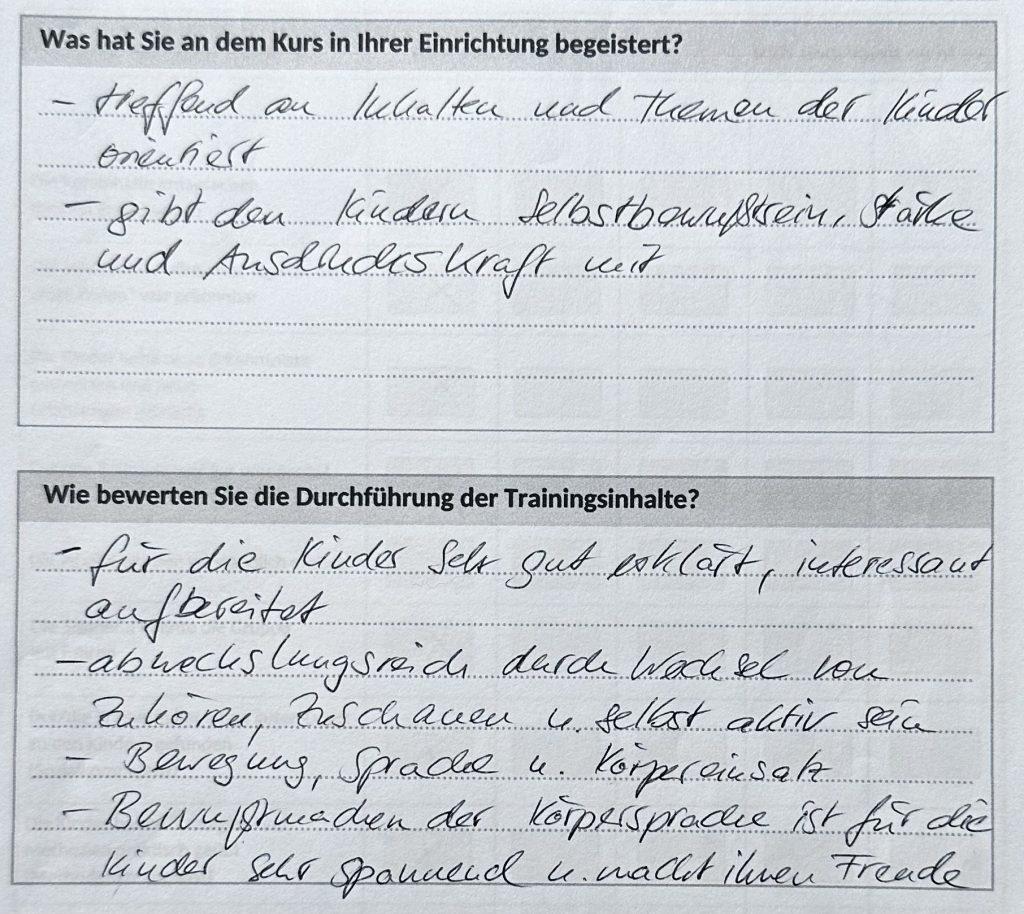 Was hat Sie an dem Kurs in Ihrer Einrichtung begeistert?
- treffend an Inhalten und Themen der Kinder
orientiert
- gibt den Kindern Selbstbewußtsein, Stärke
und Ausdruckskraft mit
Wie bewerten Sie die Durchführung der Trainingsinhalte?
- für die Kinder sehr gut erklärt, interessant
aufbereitet
- abwechslungsreich durch Wechsel von
Zuhören, Zuschauen u. selbst aktiv sein
- Bewegung, Sprache u. Körpereinsatz
- Bewußtmachen der Körpersprache ist für die
Kinder sehr spannend u. macht ihnen Freude